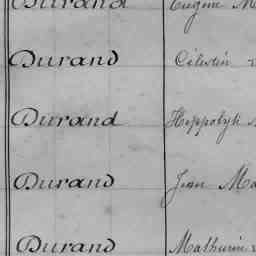 Durand Eugène
Durand Célestin
Durand Hippolyte
Durand Jean Ma
Durand Mathurin